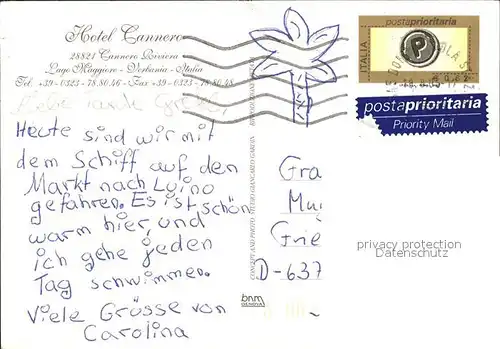 Hotel Cannero
28821 Cannero Riviera
Lago Maggiore - Verbania - Italia
Tel. +39 - 0323 - 78.80.46 - Fax +39 - 0323 - 78.80.48
Heute sind wir mit
dem Schiff auf den
Markt nach Luino
gefahren. Es ist schön
warm hier, und
ich gehe jeden
Tag schwimmen.
Viele Grüsse von
Carolina
CONCEPT AND PHOTO - STUDIO GIANCARLO GARDIN
bnm
GENOVA
postaprioritaria
ITALIA
P
postaprioritaria
Priority Mail
Gra
Mu
Grie
D-637
privacy protection
Datenschutz